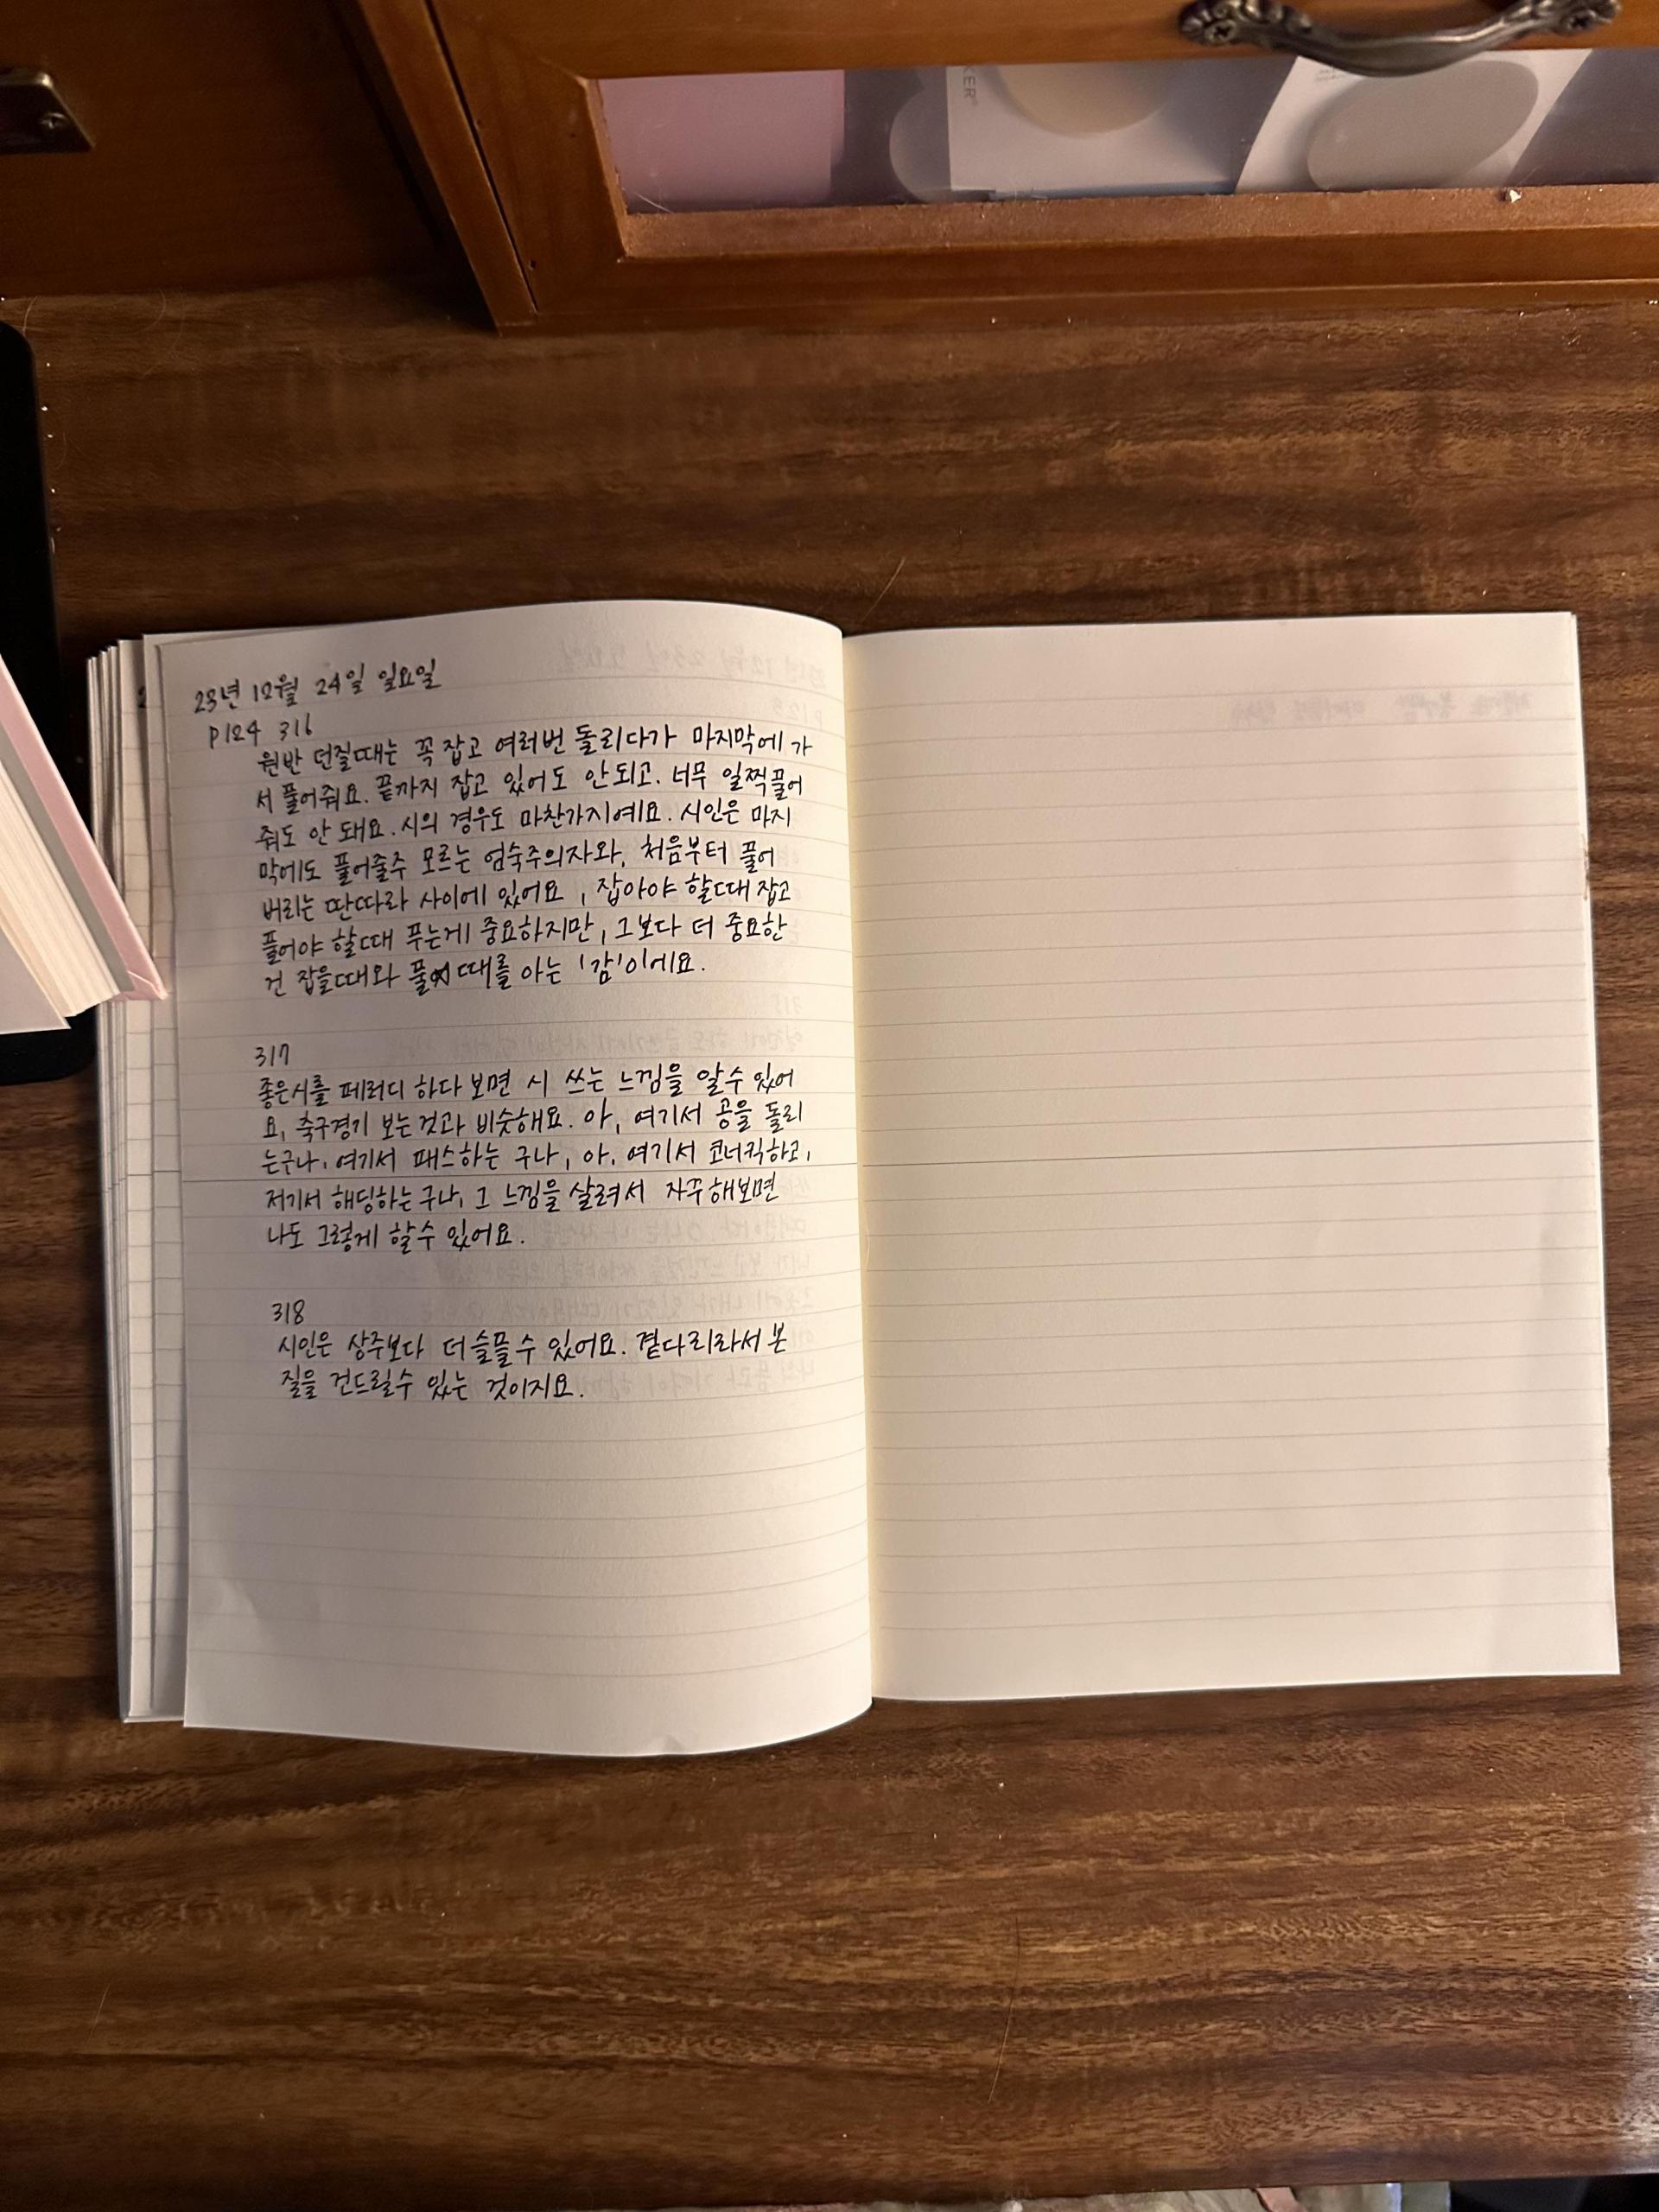 KER®
23년 12월 24일 일요일
p124 316
원반 던질때는 꼭 잡고 여러번 돌리다가 마지막에 가
서 풀어줘요. 끝까지 잡고 있어도 안되고. 너무 일찍풀어
줘도 안 돼요. 시의 경우도 마찬가지예요. 시인은 마지
막에도 풀어줄주 모르는 엄숙주의자와, 처음부터 풀어
버리는 딴따라 사이에 있어요, 잡아야 할때 잡고
풀어야 할때 푸는게 중요하지만, 그보다 더 중요한
건 잡을때와 풀 때를 아는 '감'이에요.
317
좋은시를 페러디 하다 보면 시 쓰는 느낌을 알수 있어
요, 축구경기 보는것과 비슷해요. 아, 여기서 공을 돌리
는구나, 여기서 패스하는 구나, 아, 여기서 코너킥하고,
저기서 해딩하는구나, 그 느낌을 살려서 자꾸해보면
나도 그렇게 할수 있어요.
318
시인은 상주보다 더슬플수 있어요. 곁다리라서 본
질을 건드릴수 있는 것이지요.